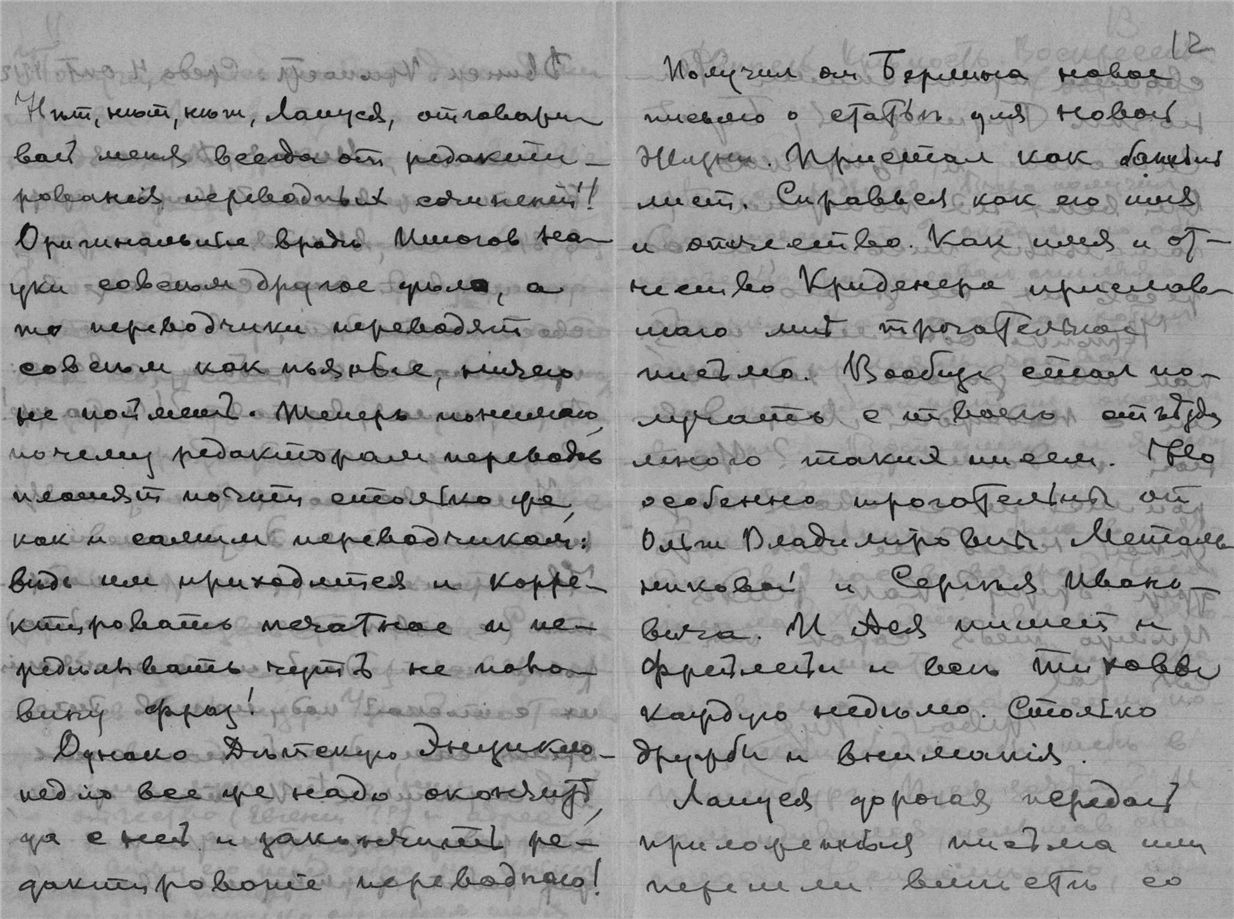 Нѣт, нѣт, нѣт, Лапуся, отговари
вай меня всегда от редакти-
рованія переводных сочиненій!
Оригинальныя вродѣ Итогов На-
уки совсѣм другое дѣло, а
то переводчики переводят
совсѣм как пьяные, ничего
не поймешь. Теперь понимаю,
почему редакторам переводов
платят почти столько же,
как и самим переводчикам:
вѣдь им приходится и корре-
ктировать печатное и пе-
редѣлывать чуть не поло-
вину фраз!
Однако Дѣтскую Энцикло-
педію все же надо окончить,
да с ней и закончить ре-
дактированіе переводного!
12
Получил от Берлина новое
письмо о статьѣ для Новой
Жизни. Пристал как банный
лист. Справься как его имя
и отчество. Как имя и от-
чество Криденера прислав-
шаго мнѣ трогательное
письмо. Вообще стал по-
лучать с твоего отъѣзда
много таких писем. Но
особенно трогательны от
Ольги Владимировны Металь
никовой и Сергѣя Ивано-
вича. И Ася пишет и
и вся Тиховы
каждую недѣлю. Столько
дружбы и вниманія.
Лапуся дорогая передай
приложенныя письма или
перешли вмѣстѣ со